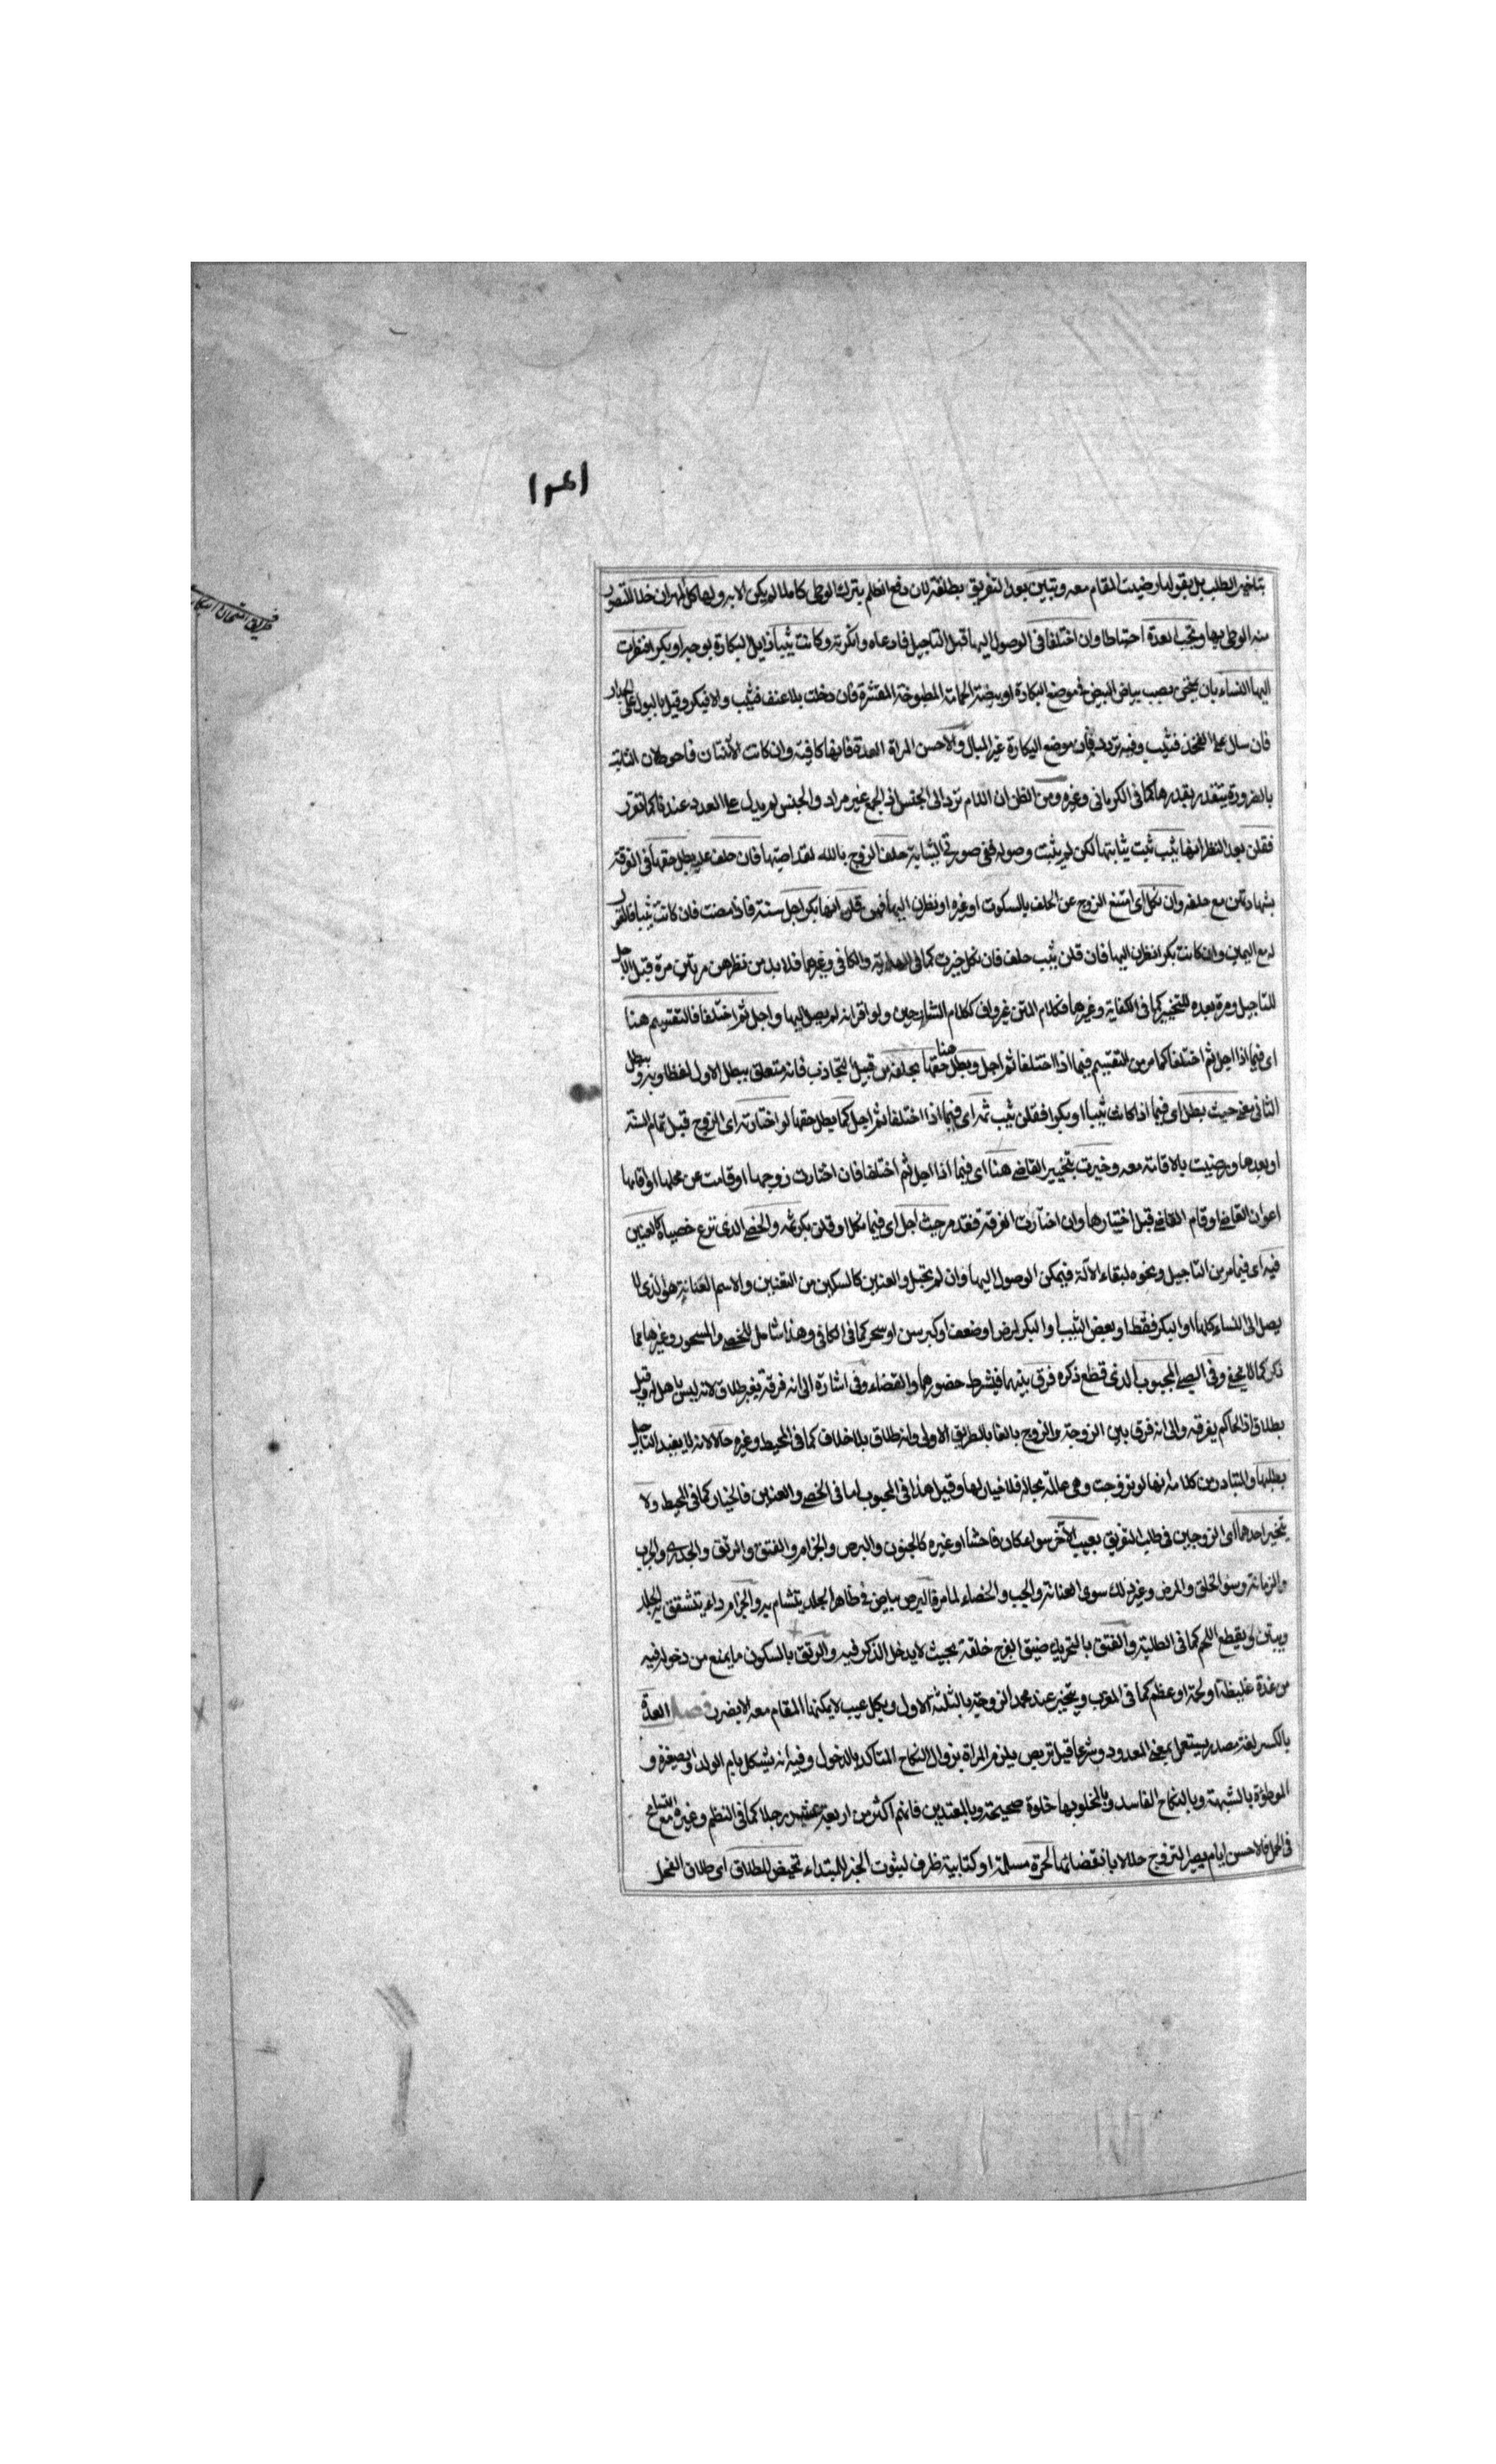 بتاخير الطلب بل بقولها رضيت المقام معه وتبين بعد التفريق بطلقة لان دفع الظلم بترك الوطى كاملا لم يكن الا به ولها كل المهر ان خلا لتصور
منه الوطى بها وتجب العدة احتياطا وان اختلفا فى الوصول اليها قبل التاجيل فادعاه وانكرته وكانت ثيبا زايل البكارة بوجه او بكرا فنظرت
اليها النساء بان يصب بياض البيض فى موضع البكارة او بيضة الحمامة المطبوخة المقشرة فان دخلت بلا عنف فثيب والا فبكر وقيل بالبول على الجدار
فان سال على الفخذ فثيب وفيه تردد فان موضع البكارة غير المبال والاحسن المراة العدة فانها كافية وان كانت الاثنتان احوط لان الثابتة
بالضرورة يتقدر بقدرها كما فى الكرمانى وغيره ومن الظن ان اللام ترد الى الجنس اذ الجمع غير مراد والجنس لم يدل على العدد عندنا كما تقرر
فقلن بعد النظر انها ثيب ثبت ثيابتها لكن لم يثبت وصوله ففى صورتى الثيابة حلف الزوج بالله لقد اصبتها فان حلف عليه بطل حقها فى الفرقة
بشهادتهن مع حلفه وان نكل اى امتنع الزوج عن الحلف بالسكوت او غيره او نظرن اليها فهن قلن انها بكر اجل سنة فاذا مضت فان كانت ثيبا فالقول
له مع اليمين وان كانت بكرا نظرن اليها فان قلن ثيب حلف فان نكل خيرت كما فى الهداية والكافى وغيرهما فلا بد من نظرهن مرتين مرة قبل الاجل
للتاجيل ومرة بعده للتخيير كما فى الكفاية وغيرها فكلام المتن غير واف ككلام الشارحين ولو اقر انه لم يصل اليها واجل ثم اختلفا فالتقسيم هنا
اى فيما اذا اجل ثم اختلفا كما مر من التقسيم فيما اذا اختلفا ثم اجل وبطل حقها هنا بحلفه من قبيل التجاذب فانه متعلق ببطل الاول لفظا وبيبطل
الثانى معنى حيث بطل اى فيما اذا كانت ثيبا او بكرا فقلن ثيب ثمه اى فيما اذا اختلفا ثم اجل كما يطل حقها لو اختارته اى الزوج قبل تمام السنة
او بعدها ورضيت بالاقامة معه وخيرت بتخيير القاضى هنا اى فيما اذا اجل ثم اختلفا فان اختارت زوجها او قامت عن محلها او اقامها
اعوان القاضى او قام القاضى قبل اختيارها وان اختارت الفرقة فقد مر حيث اجل اى فيما نكل او قلن بكر ثمه والخصى الذى نزع خصياه كالعنين
فيه اى فيما مر من التاجيل ونحوه لبقاء الآلة فيمكن الوصول اليها وان لم تحبل والعنين كالسكين من التعنين والاسم العنانة هو الذى لا
يصل الى النساء كلها او البكر فقط او بعض الثيب والبكر لمرض او ضعف او كبر سن او سحر كما فى الكافى وهذا شامل للخصى والمسحور وغيرهما مما
ذكر كما لا يخفى وفى المجبوب الذى قطع ذكره فرق بينهما فيشرط حضورهما والقضاء وفى اشارة الى انه فرقة بغير طلاق لانه ليس باهل له وقيل
بطلاق اذ الحاكم يفرقه والى انه فرق بين الزوجة والزوج بالغا بالطريق الاولى وانه طلاق بلا خلاف كما فى المحيط وغيره حالا لانه لا يفيد التاجيل
بطلبها والمتبادر من كلامه انها لو تزوجت وهى عالمة بحاله فلا خيار لها وقيل هذا فى المجبوب اما فى الخصى والعنين فالخيار كما فى المحيط ولا
يتخير احدهما اى الزوجين فى طلب التفريق بعيب الآخر سواء كان فاحشا او غيره كالجنون والبرص والجذام والفتق والرتق والجدرى والجرب
والزمانة وسوء الخلق والمرض وغير ذلك سوى العنانة والجب والخصاء لما مر فالبرص بياض فى ظاهر الجلد يتشام به والجذام داء يتشقق به الجلد
وينتن ويقطع اللحم كما فى الطلبة والفتق بالتحريك ضيق الفرج خلقة بحيث لا يدخل الذكر فيه والرتق بالسكون ما يمنع من دخوله فيه
من غدة غليظة او لحمة او عظم كما فى المغرب ويتخير عند محمد الزوجة بالثلثة الاول وبكل عيب لا يمكنها المقام معه الا بضرر فصل العدة
بالكسر لغة مصدر يستعمل بمعنى المعدود وشرعا قيل تربص يلزم المراة بزوال النكاح المتاكد بالدخول وفيه انه يشكل بام الولد والصغيرة و
الموطوءة بالشبهة وبالنكاح الفاسد وبالمخلو بها خلوة صحيحة وبالمعتدين فانهم اكثر من اربعة عشر رجلا كما فى النظم وغيره مع التسامح
فى الحمل فالاحسن ايام يصير التزوج حلالا بانقضائها للحرة مسلمة او كتابية ظرف لثبوت الخبر للمبتداء تحيض للطلاق اى طلاق الفحل